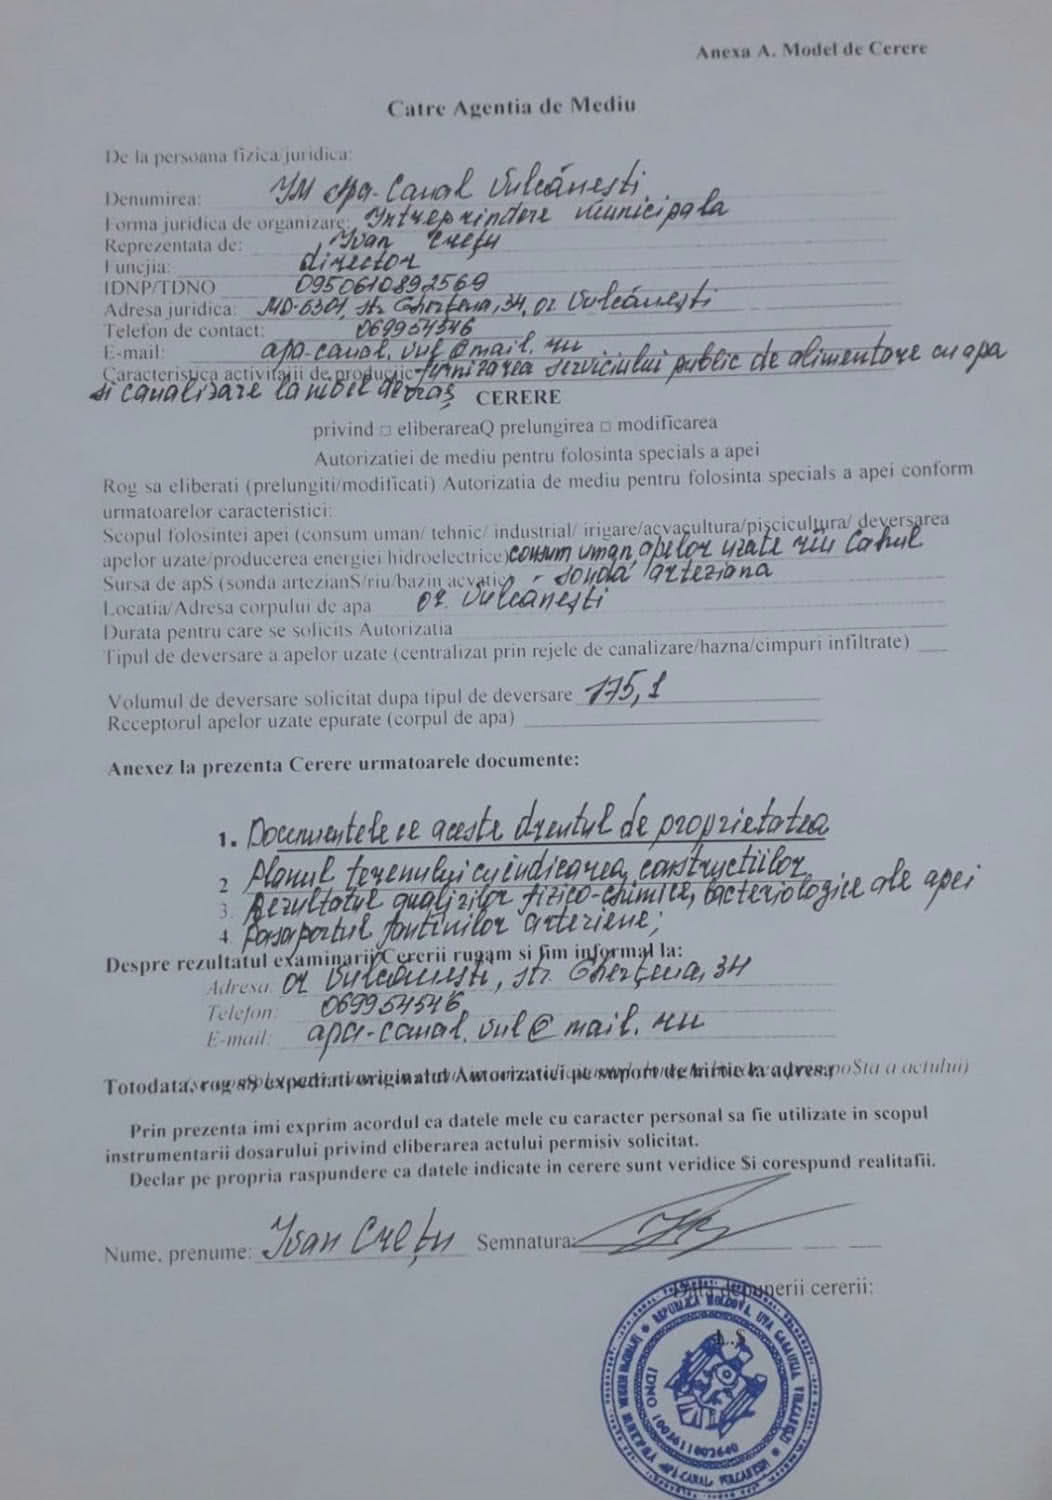 Anexa A. Model de Cerere
Catre Agentia de Mediu
De la persoana fizica/juridica:
Denumirea: ÎM Apa-Canal Vulcănești
Forma juridica de organizare: Intreprindere municipala
Reprezentata de: Ivan Crețu
Funcjia: director
IDNP/TDNO 0950610892569
Adresa juridica: MD-5301, str. Gherțena, 34, or. Vulcănești
Telefon de contact: 069954546
E-mail: apa-canal.vul@mail.ru
Caracteristica activitajii de productie furnizarea serviciului public de alimentare cu apa
si canalizare la nivel de oraș
CERERE
privind □ eliberareaQ prelungirea □ modificarea
Autorizatiei de mediu pentru folosinta specials a apei
Rog sa eliberati (prelungiti/modificati) Autorizatia de mediu pentru folosinta specials a apei conform
urmatoarelor caracteristici:
Scopul folosintei apei (consum uman/ tehnic/ industrial/ irigare/acvacultura/piscicultura/ deversarea
apelor uzate/producerea energiei hidroelectrice) consum uman, apelor uzate riu Cahul
Sursa de apS (sonda artezianS/riu/bazin acvatic - sonda arteziana
Locatia/Adresa corpului de apa or. Vulcănești
Durata pentru care se solicits Autorizatia
Tipul de deversare a apelor uzate (centralizat prin rejele de canalizare/hazna/cimpuri infiltrate)
Volumul de deversare solicitat dupa tipul de deversare 175,1
Rcceptorul apelor uzate epurate (corpul de apa)
Anexez la prezenta Cerere urmatoarele documente:
1. Documentele ce aceste dreutul de proprietatea
2 Planul terenului cu indicarea constructiilor
3. Rezultatul analizilor fizico-chimice, bacteriologice ale apei
4. Pasaportul fantinilor arteriene;
Despre rezultatul examinarii Cererii rugam si fim informal la:
Adresa: or. Vulcănești, str. Gherțena, 34
Telefon: 069954546
E-mail: apa-canal.vul@mail.ru
Totodata, rog sS expediati originalul Autorizatiei pe suport de hirtie la adresa poSta a actului)
Prin prezenta imi exprim acordul ca datele mele cu caracter personal sa fie utilizate in scopul
instrumentarii dosarului privind eliberarea actului permisiv solicitat.
Declar pe propria raspundere ca datele indicate in cerere sunt veridice Si corespund realitafii.
Nume, prenume: Ivan Crețu Semnatura:
Data depunerii cererii:
L.S
REPUBLICA MOLDOVA, UTA GAGAUZIA, VULCANESTI
IDNO 1003611002640
APA-CANAL VULCANESTI